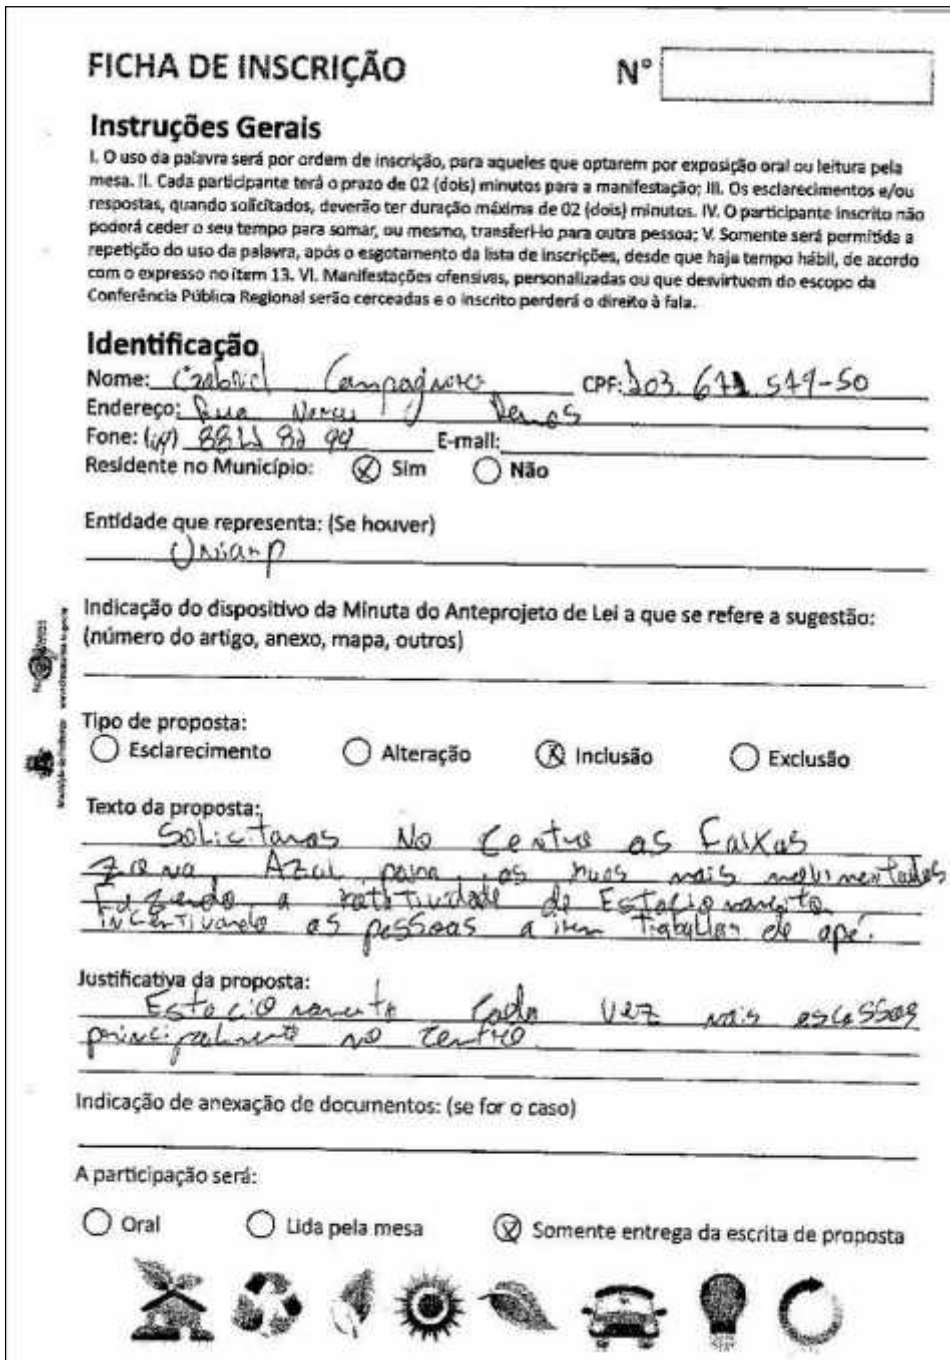 FICHA DE INSCRIÇÃO
N°
Instruções Gerais
I. O uso da palavra será por ordem de inscrição, para aqueles que optarem por exposição oral ou leitura pela
mesa. II. Cada participante terá o prazo de 02 (dois) minutos para a manifestação; III. Os esclarecimentos e/ou
respostas, quando solicitados, deverão ter duração máxima de 02 (dois) minutos. IV. O participante inscrito não
poderá ceder o seu tempo para somar, ou mesmo, transferi-lo para outra pessoa; V. Somente será permitida a
repetição do uso da palavra, após o esgotamento da lista de inscrições, desde que haja tempo hábil, de acordo
com o expresso no item 13. VI. Manifestações ofensivas, personalizadas ou que desvirtuem do escopo da
Conferência Pública Regional serão cerceadas e o inscrito perderá o direito à fala.
Identificação
Nome: Gabriel CPF:
Endereço: Rua
Fone: E-mail:
Residente no Município: (X) Sim Não
Entidade que representa: (Se houver)
Uniarp
Indicação do dispositivo da Minuta do Anteprojeto de Lei a que se refere a sugestão:
(número do artigo, anexo, mapa, outros)
Tipo de proposta:
Esclarecimento Alteração (X) Inclusão Exclusão
Texto da proposta:
Solicitamos No Centro as Faixas
zona Azul para as ruas mais movimentadas
Fazendo a rotatividade de Estacionamento
incentivando as pessoas a irem trabalhar de apé.
Justificativa da proposta:
Estacionamento cada vez mais escassos
principalmente no centro
Indicação de anexação de documentos: (se for o caso)
A participação será:
Oral Lida pela mesa (X) Somente entrega da escrita de proposta